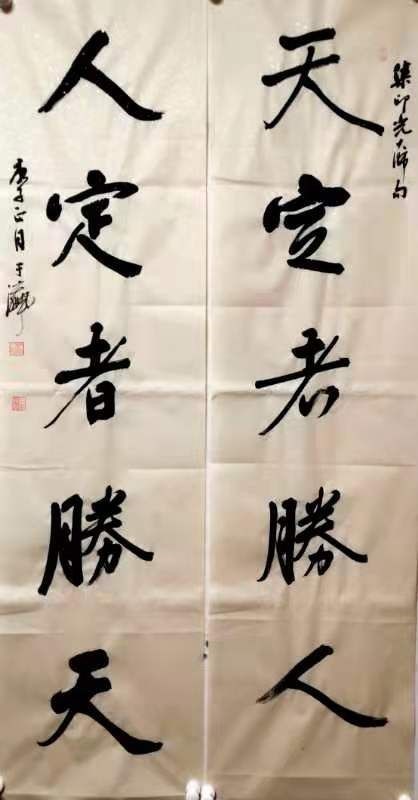 印光大师句
天定者勝人
人定者勝天
庚子正月于